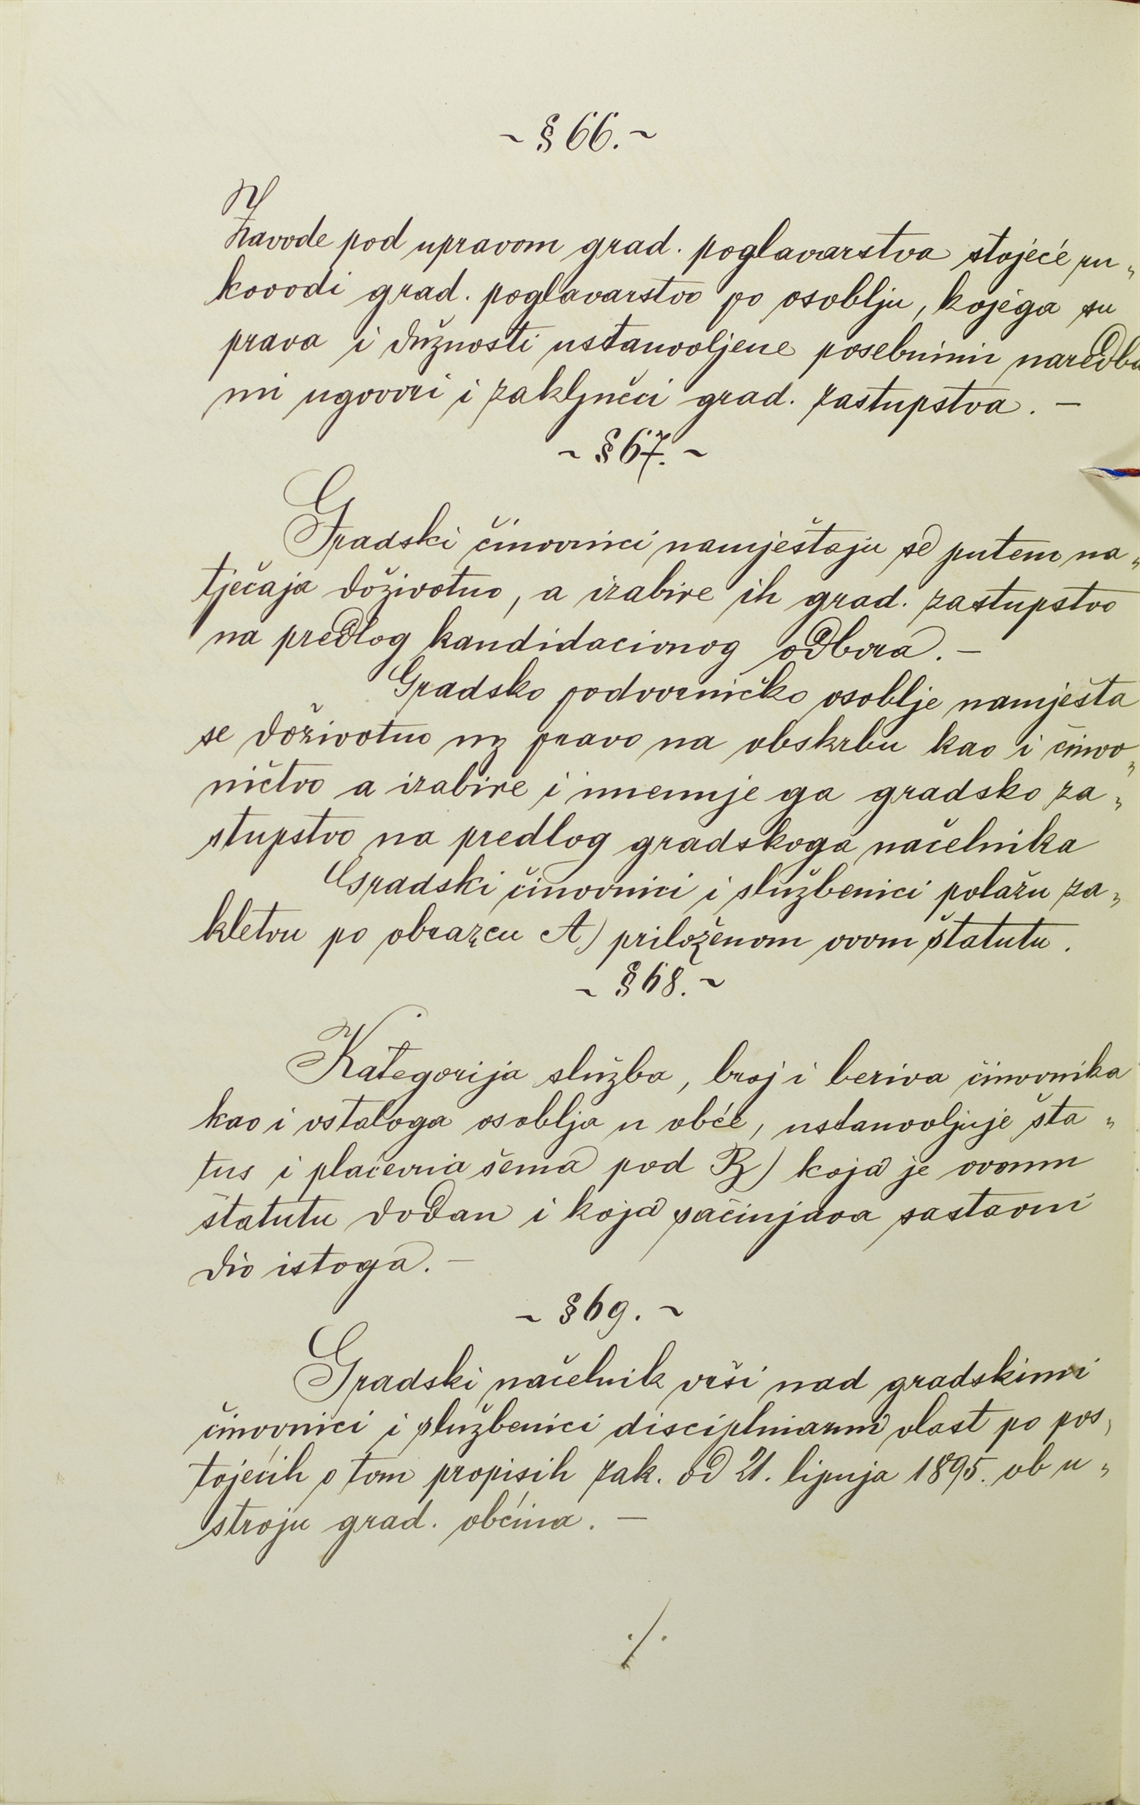 ~ § 66. ~
Zavode pod upravom grad. poglavarstva stojeće ru„
kovodi grad. poglavarstvo po osoblju, kojega su
prava i dužnosti ustanovljene posebnimi naredba
mi ugovori i zaključci grad. zastupstva. —
~ § 67. ~
Gradski činovnici namještaju se putem na„
tječaja doživotno, a izabire ih grad. zastupstvo
na predlog kandidacionog odbora. —
Gradsko podvorničko osoblje namješta
se doživotno uz pravo na obskrbu kao i činov„
ničtvo a izabire i imenuje ga gradsko za„
stupstvo na predlog gradskoga načelnika
Gradski činovnici i službenici polažu za„
kletvu po obrazcu A) priloženom ovom štatutu.
~ § 68. ~
Kategorija služba, broj i beriva činovnika
kao i ostaloga osoblja u obće, ustanovljuje šta„
tus i plaćevna šema pod B) koja je ovomu
štatutu dodan i koja sačinjava sastavni
dio istoga. —
~ § 69. ~
Gradski načelnik vrši nad gradskimi
činovnici i službenici disciplinarni vlast po pos„
tojećih o tom propisih zak. od 21. lipnja 1895. ob u„
stroju grad. obćina. —
./.